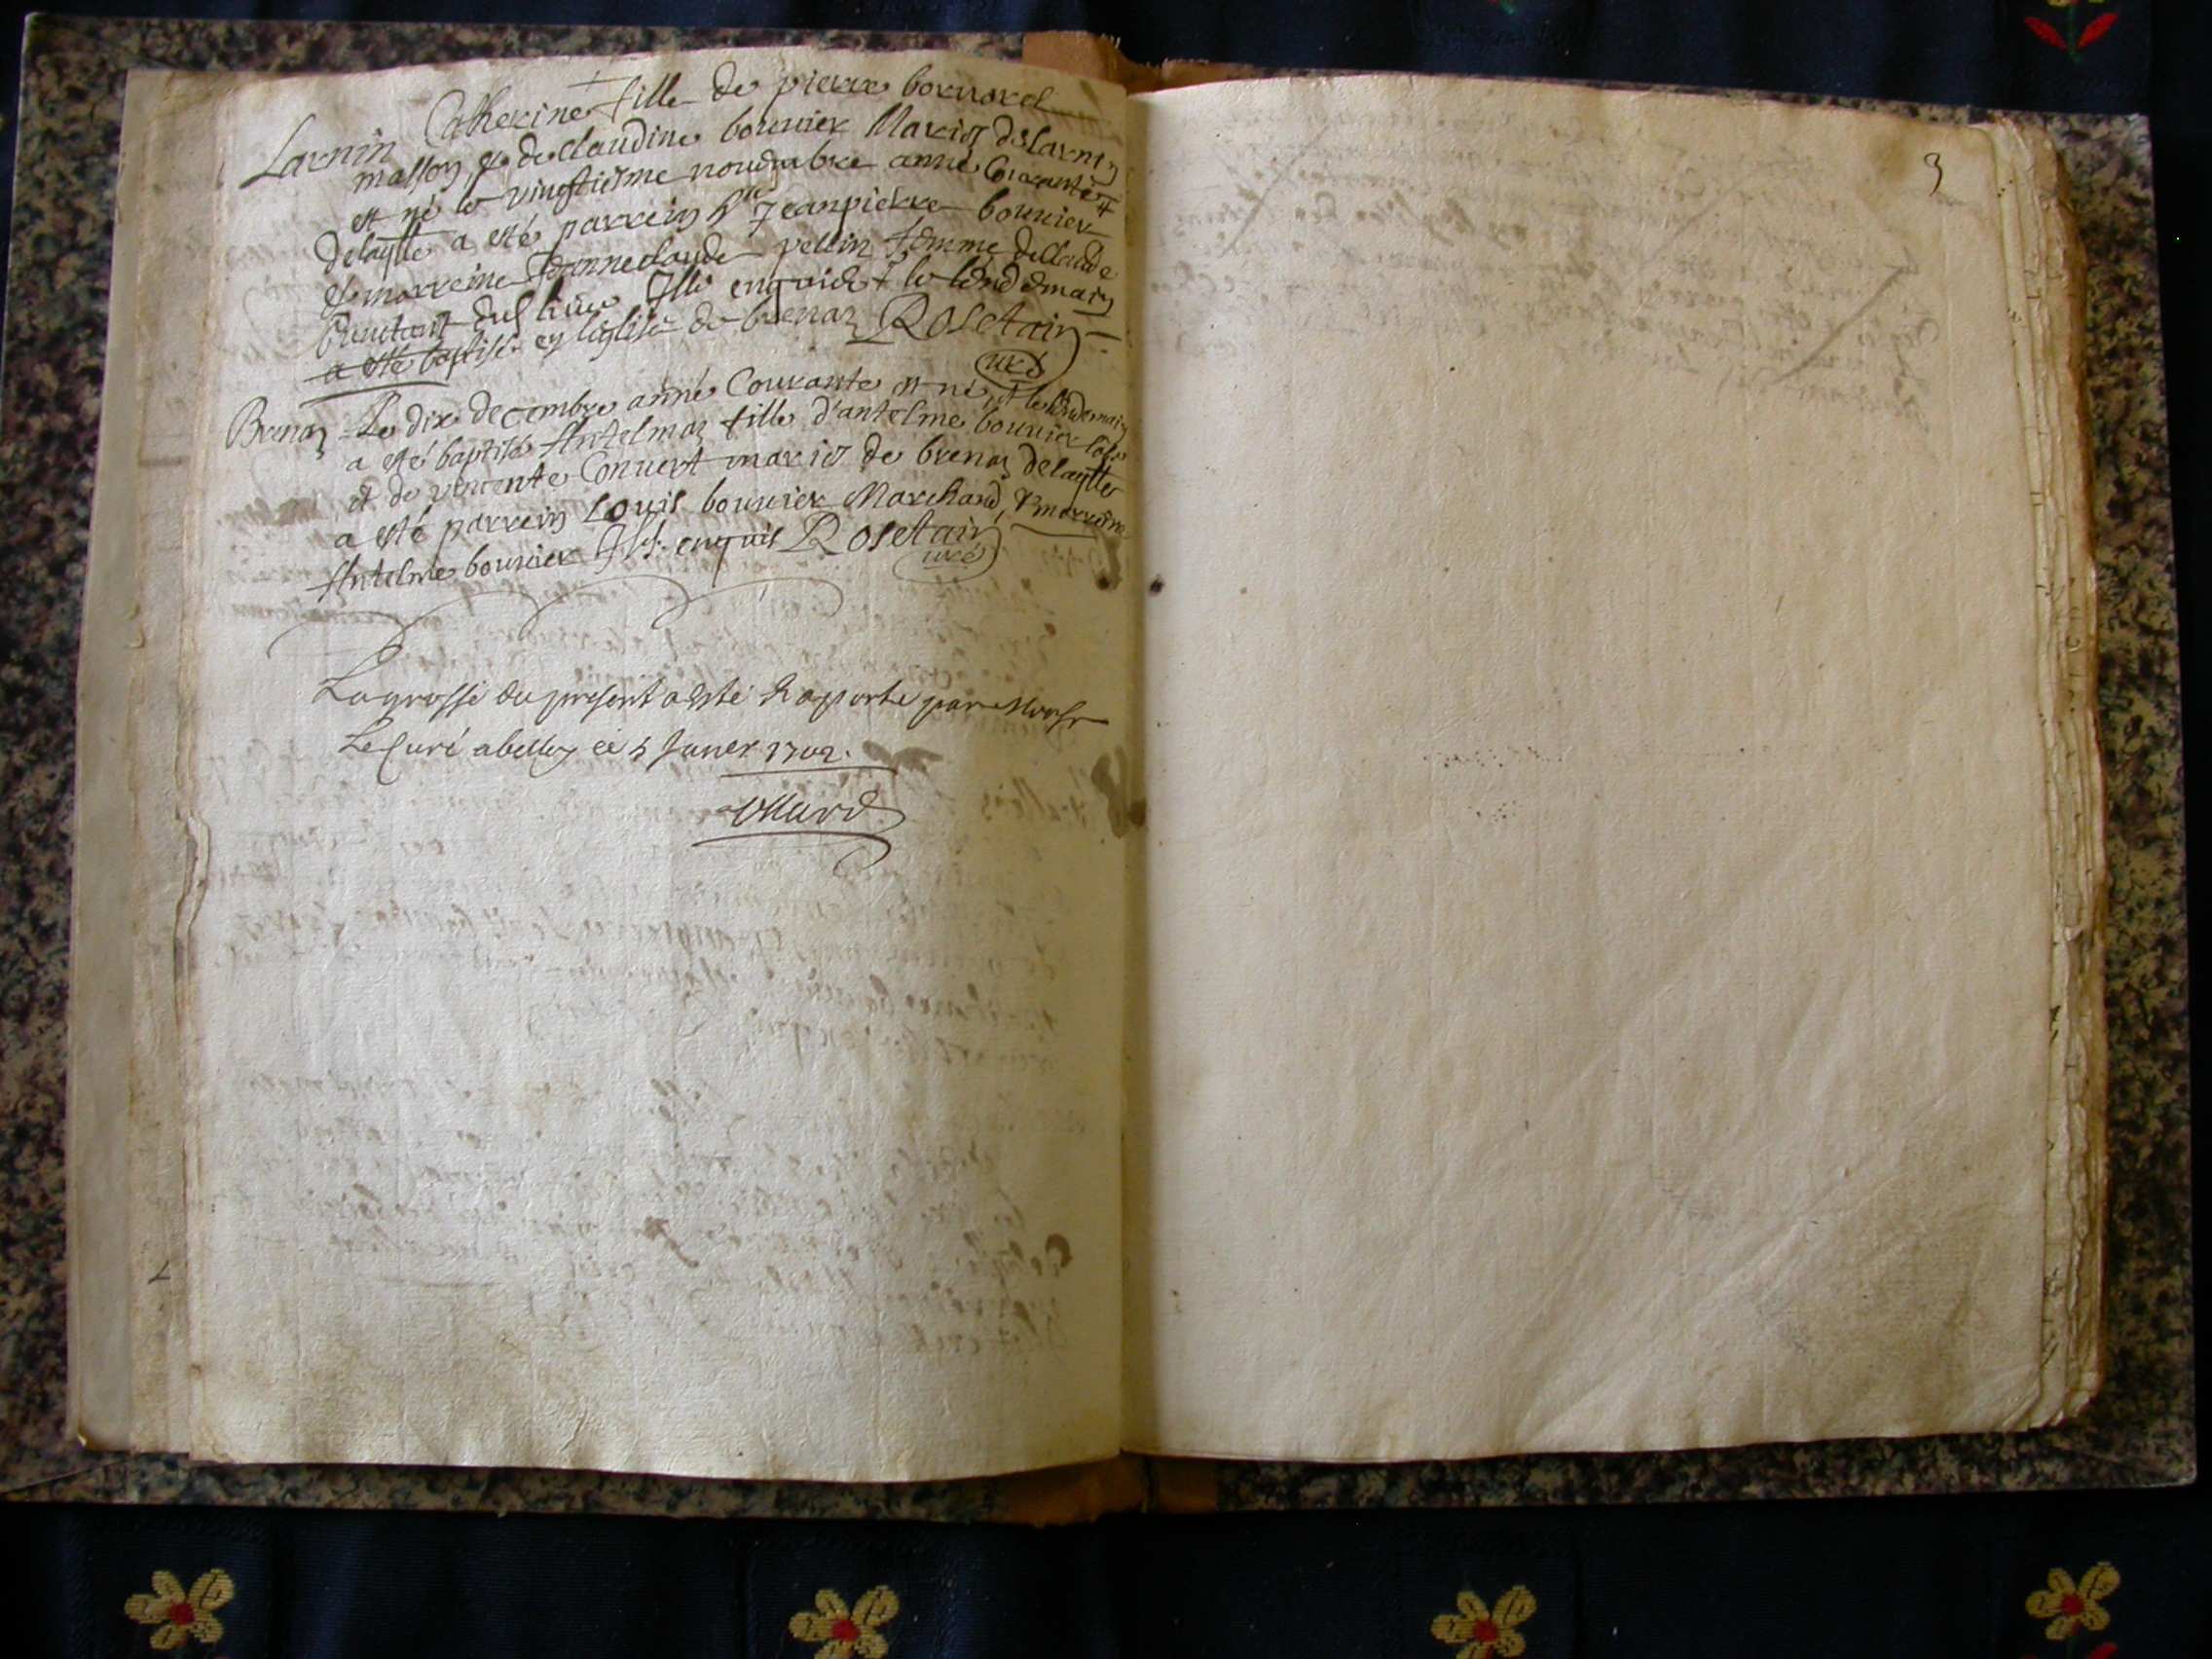 Larnin Catherine fille de pierre bornarel
masson, et de Claudine bouvier Mariés de Larnin
est né le vingtiesme novembre anné Courante et
delaquelle a esté parrein Sr Jeanpierre bouvier
et marreine Jeanneclaude pellin femme de Claude
Illi enquis et le lendemain
a esté baptisé en leglise de brenaz Rosetain
curé
Brenaz Le dix decembre anné Courante est né, et le lendemain
a esté baptisé Antelmaz fille d'antelme bouvier
et de vincente Convert mariés de brenaz delaquelle
a esté parrein Louis bouvier Marchand, & marreine
Antelme bouvier Ill. enquis Rosetain
curé
La grosse du present a esté Raporté par Monsr
Le Curé a belley ce 5 Janer 1702.
3